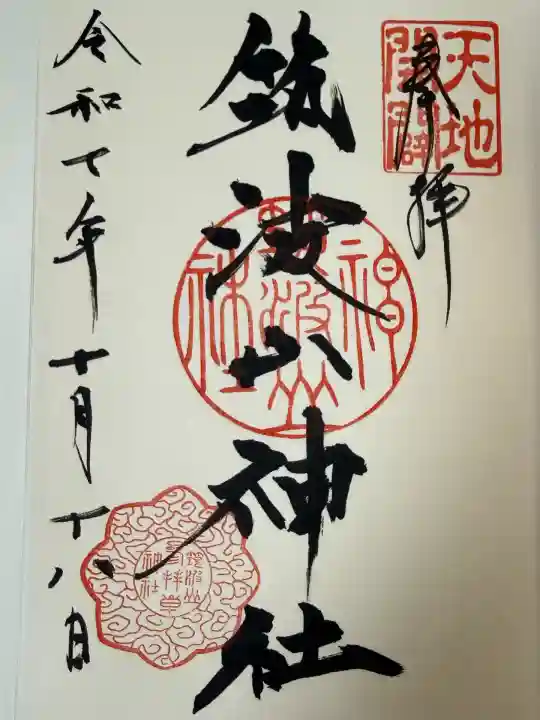 奉拝
天地開闢
筑波山神社
筑波山神社
令和七年十月十八日
筑波山神社参拝章